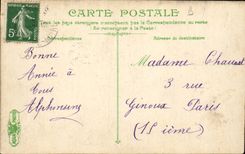 CARTE POSTALE
Tous les pays étrangers n'acceptent pas la Correspondance au verso
Se renseigner à la Poste
Correspondance
Adresse du destinataire
Bonne
Année à
tous
Alphonsine
Madame
3 rue
Ginoux Paris
(15 ième)
5